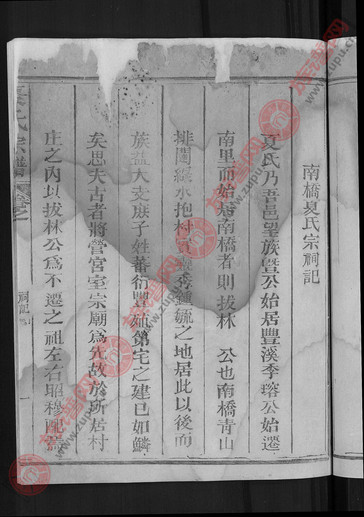 南橋夏氏宗祠記
夏氏乃吾邑望族暨公始居豐溪季瑢公始遷
南里而始居南橋者則拔林 公也南橋青山
排闥綠水抱村鍾毓之地居此以後而
族益大支族子姓蕃衍豐第宅之建已如鱗
矣思夫古者將營宮室宗廟爲先故於所居村
庄之內以拔林公爲不遷之祖左右昭穆配
氏宗譜
卷之
祠記
族譜网